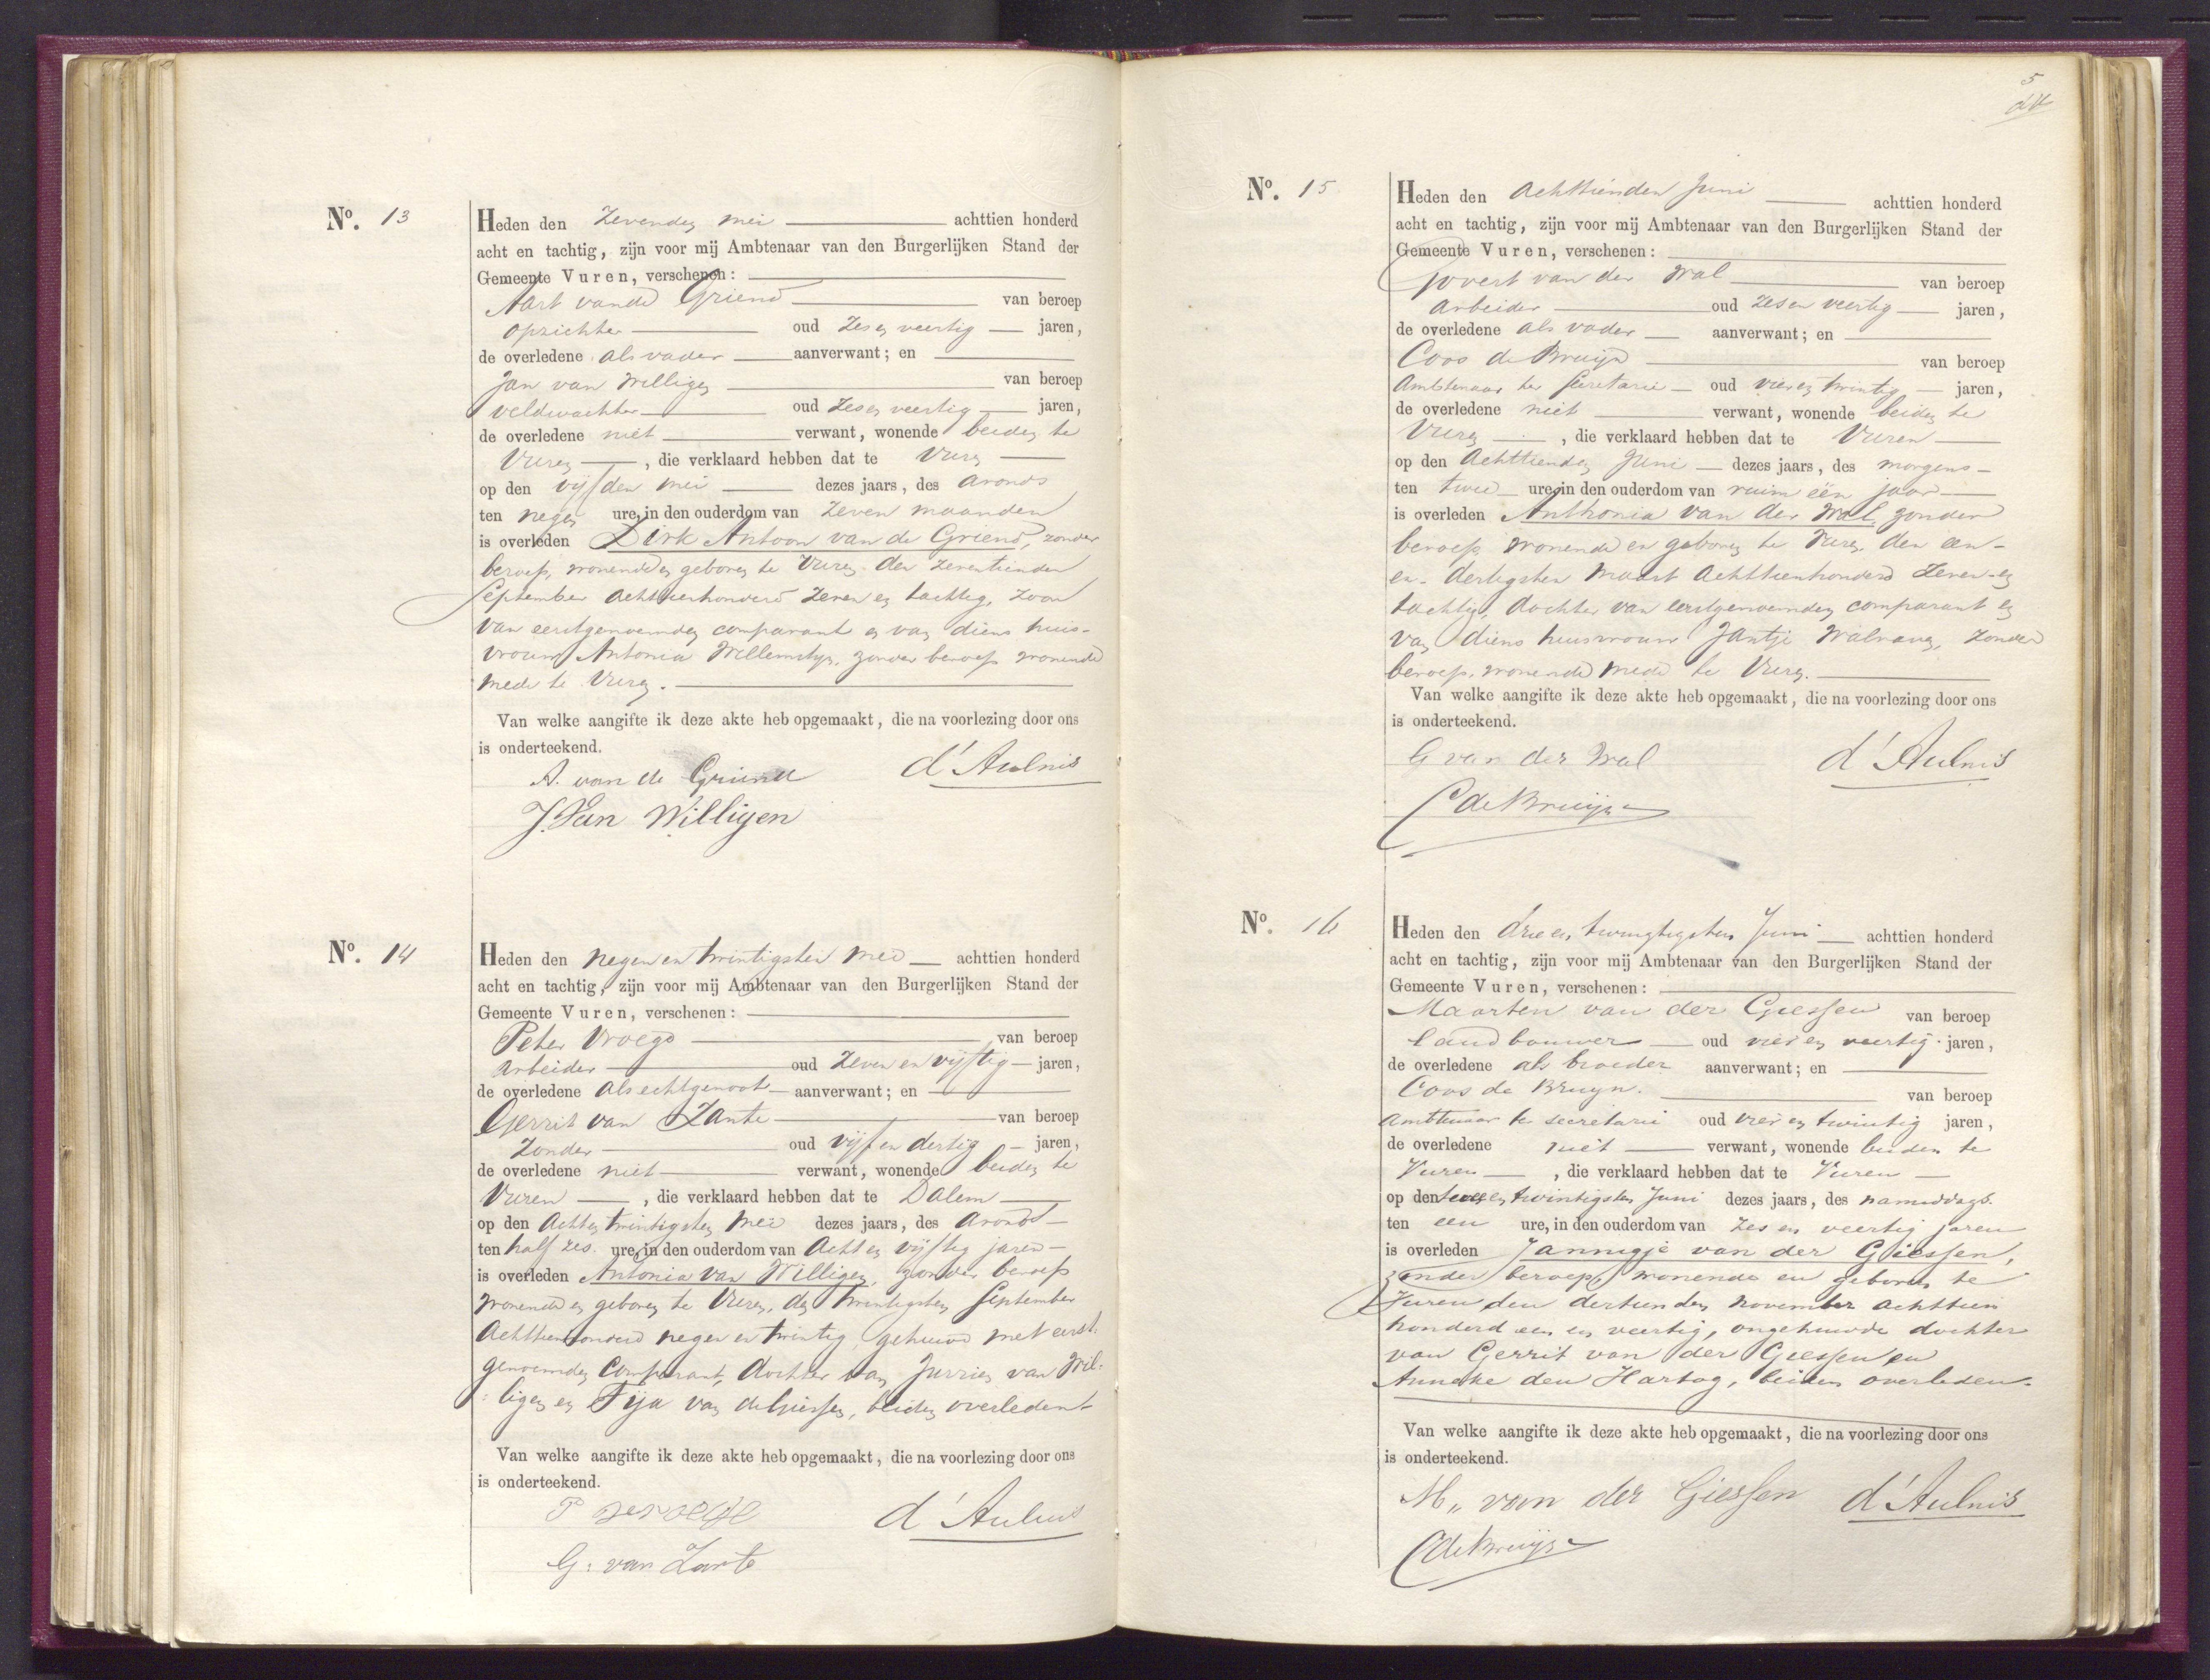 Nº. 13
Heden den Zevenden mei achttien honderd
acht en tachtig, zijn voor mij Ambtenaar van den Burgerlijken Stand der
Gemeente Vuren, verschenen:
Aart van de Griend van beroep
opzichter oud Zes en veertig jaren,
de overledene als vader aanverwant; en
Jan van Willigen van beroep
veldwachter oud Zes en veertig jaren,
de overledene niet verwant, wonende beiden te
Vuren, die verklaard hebben dat te Vuren
op den vijfden mei dezes jaars, des avonds
ten negen ure, in den ouderdom van Zeven maanden
is overleden Dirk Antoon van de Griend, zonder
beroep, wonende en geboren te Vuren den zeventienden
September Achttienhonderd Zeven en tachtig, zoon
van eerstgenoemden comparant en van diens huis-
vrouw Antonia Willemstyn, zonder beroep wonende
mede te Vuren.
Van welke aangifte ik deze akte heb opgemaakt, die na voorlezing door ons
is onderteekend.
A. van de Griend d'Aulnis
J. Van Willigen
Nº. 14
Heden den negen en twintigsten mei achttien honderd
acht en tachtig, zijn voor mij Ambtenaar van den Burgerlijken Stand der
Gemeente Vuren, verschenen:
Peter Vroege van beroep
arbeider oud Zeven en vijftig jaren,
de overledene als echtgenoot aanverwant; en
Gerrit van Zante van beroep
Zonder oud vijf en dertig jaren,
de overledene niet verwant, wonende beiden te
Vuren, die verklaard hebben dat te Dalem
op den Acht en twintigsten mei dezes jaars, des avonds
ten half zes ure, in den ouderdom van Acht en vijftig jaren
is overleden Antonia van Willigen, zonder beroep
wonende en geboren te Vuren, den twintigsten September
Achttienhonderd negen en twintig, gehuwd met eerst:
genoemden Comparant, dochter van Jurrien van Wil:
:ligen en Fija van de Giessen, beiden overleden
Van welke aangifte ik deze akte heb opgemaakt, die na voorlezing door ons
is onderteekend.
P vervoege d'Aulnis
G: van Zante
5
Nº. 15
Heden den Achttienden Juni achttien honderd
acht en tachtig, zijn voor mij Ambtenaar van den Burgerlijken Stand der
Gemeente Vuren, verschenen:
Govert van der Wal van beroep
arbeider oud Zes en veertig jaren,
de overledene als vader aanverwant; en
Coos de Bruijn van beroep
Ambtenaar ter Secretarie oud vier en twintig jaren,
de overledene niet verwant, wonende beiden te
Vuren, die verklaard hebben dat te Vuren
op den Achttienden Juni dezes jaars, des morgens
ten twee ure, in den ouderdom van ruim één jaar
is overleden Anthonia van der Wal, zonder
beroep, wonende en geboren te Vuren den een-
en-dertigsten Maart Achttienhonderd Zeven en
tachtig, dochter van eerstgenoemden comparant en
van diens huisvrouw Jantje Walraven, zonder
beroep, wonende mede te Vuren.
Van welke aangifte ik deze akte heb opgemaakt, die na voorlezing door ons
is onderteekend.
G van der Wal d'Aulnis
C de Bruijn
Nº. 16
Heden den drie en twingtigsten Juni achttien honderd
acht en tachtig, zijn voor mij Ambtenaar van den Burgerlijken Stand der
Gemeente Vuren, verschenen:
Maarten van der Giessen van beroep
landbouwer oud vier en veertig jaren,
de overledene als broeder aanverwant; en
Coos de Bruyn. van beroep
Ambtenaar ter secretarie oud vier en twintig jaren,
de overledene niet verwant, wonende beiden te
Vuren, die verklaard hebben dat te Vuren
op den twee en twintigsten Juni dezes jaars, des namiddags
ten een ure, in den ouderdom van Zes en veertig jaren
is overleden Jannigje van der Giessen,
zonder beroep, wonende en geboren te
Vuren den dertienden november achttien
honderd een en veertig, ongehuwde dochter
van Gerrit van der Giessen en
Anneke den Hartog, beiden overleden.
Van welke aangifte ik deze akte heb opgemaakt, die na voorlezing door ons
is onderteekend.
M,, van der Giessen d'Aulnis
C de Bruijn